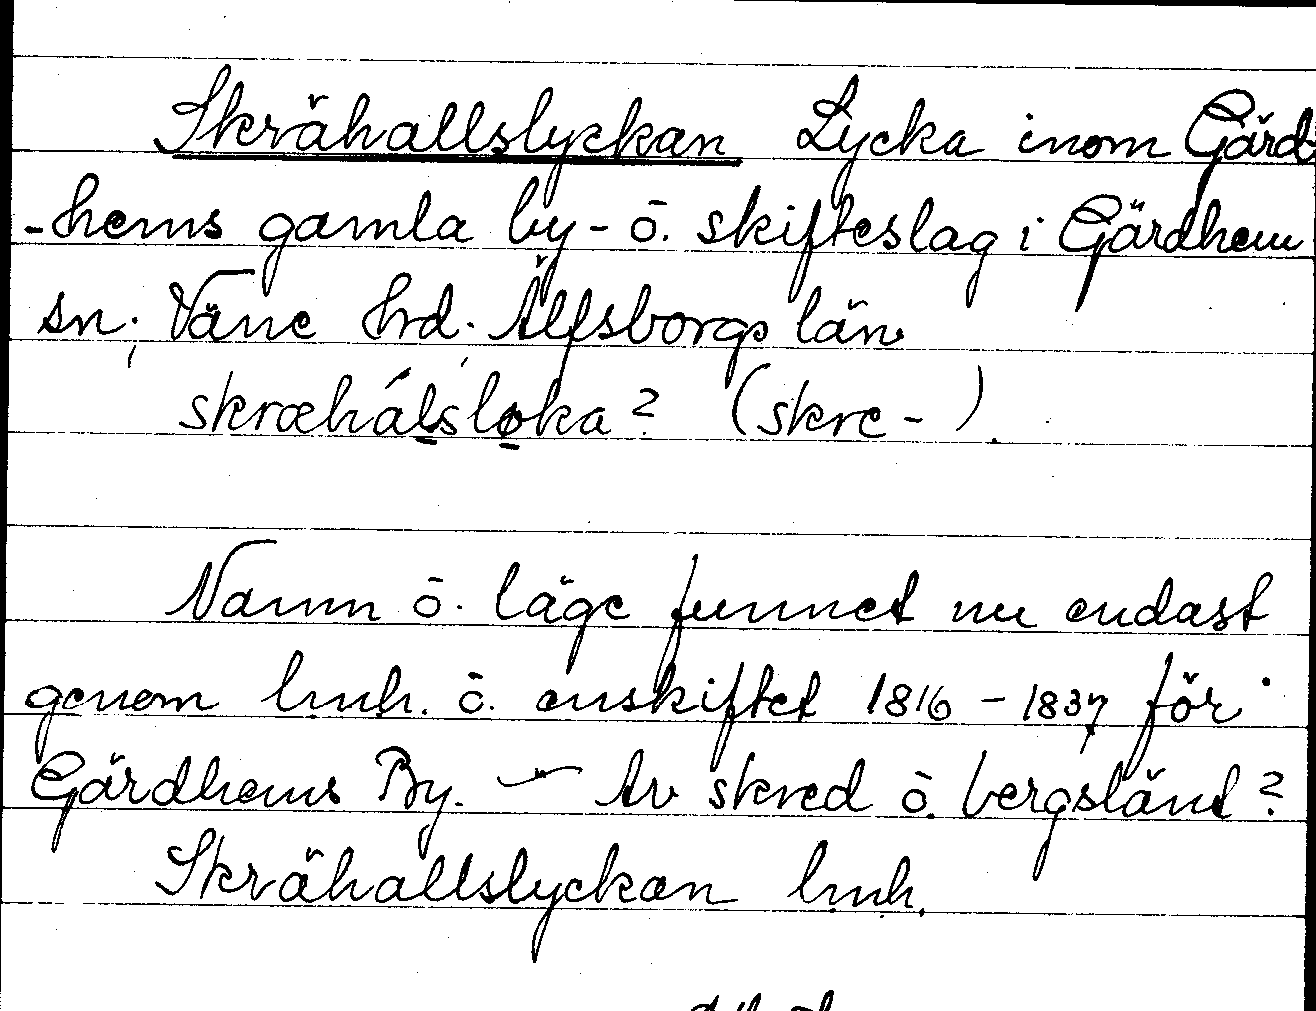 Skrähallslyckan Lycka inom Gärd
-hems gamla by- ō. skifteslag i Gärdhem
sn; Väne hrd. Älfsborgs län
skræhálsloka? (skre-).
Namn ō. läge funnet nu endast
genom lmh. ō. enskiftet 1816-1837 för
Gärdhems By. — Av skred ō. bergslänt?
Skrähallslyckan lmh.